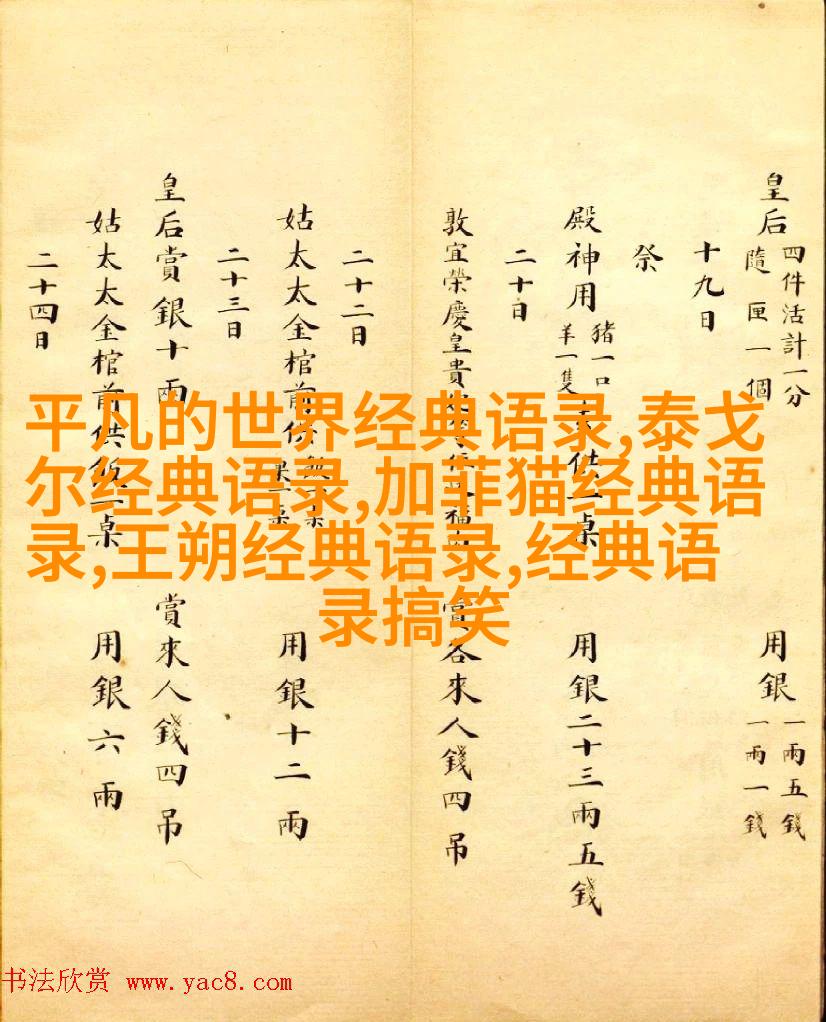 皇后 四件活計一分
隨匣一個
用銀 一兩五錢
一兩一錢
十九日
祭
殿神用 豬一口
羊一隻
供一桌
用銀二十三兩五錢
二十日
敦宜榮慶皇貴
福
賞各來人錢四吊
二十二日
姑太太金棺前供飯一桌
果一桌
用銀十二兩
二十三日
皇后賞銀十兩
賞來人錢四吊
姑太太金棺前供飯一桌
用銀六兩
二十四日
平凡的世界经典语录,泰戈
尔经典语录,加菲猫经典语
录,王朔经典语录,经典语
录搞笑
书法欣赏 www.yac8.com